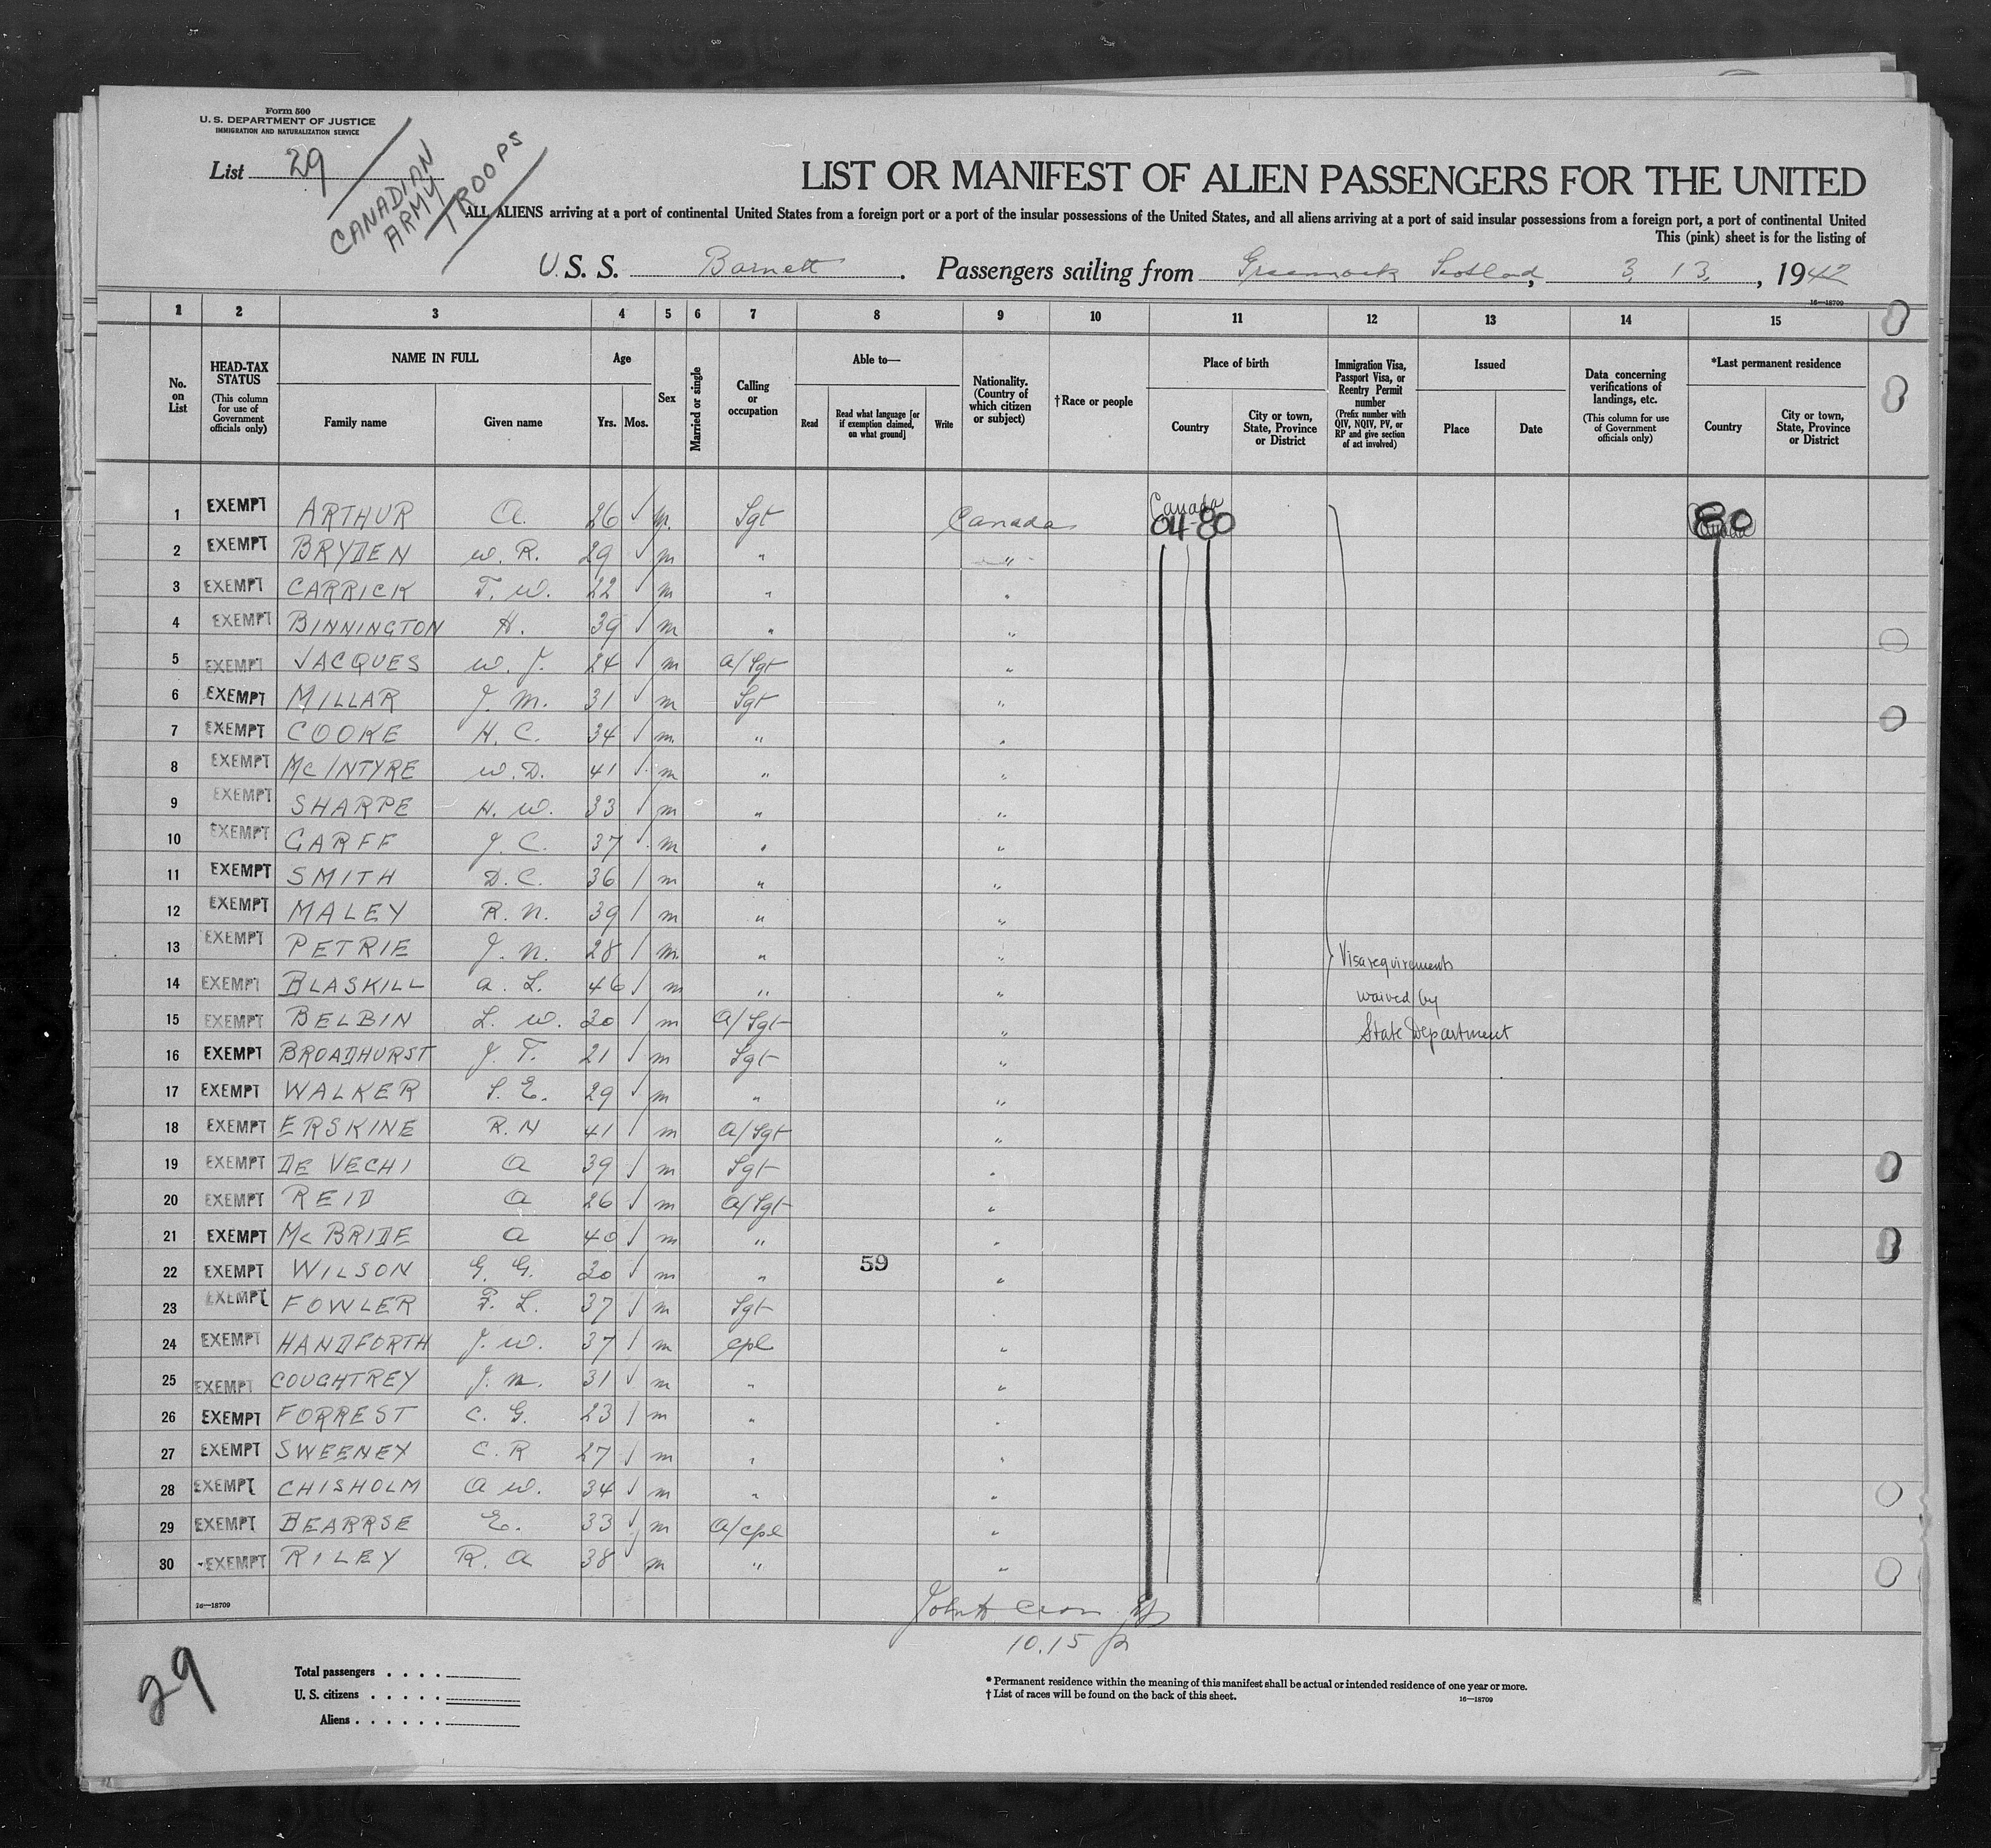 Form 500
U. S. DEPARTMENT OF JUSTICE
IMMIGRATION AND NATURALIZATION SERVICE
List 29
CANADIAN
ARMY
TROOPS
LIST OR MANIFEST OF ALIEN PASSENGERS FOR THE UNITED
ALL ALIENS arriving at a port of continental United States from a foreign port or a port of the insular possessions of the United States, and all aliens arriving at a port of said insular possessions from a foreign port, a port of continental United
This (pink) sheet is for the listing of
U.S. S. Barnett . Passengers sailing from Greenock Scotland, 3, 13, , 1942
16—18709
1 2 3 4 5 6 7 8 9 10 11 12 13 14 15
No. on List
HEAD-TAX STATUS (This column for use of Government officials only)
NAME IN FULL
Family name
Given name
Age
Yrs. Mos.
Sex
Married or single
Calling or occupation
Able to—
Read
Read what language [or if exemption claimed, on what ground]
Write
Nationality. (Country of which citizen or subject)
†Race or people
Place of birth
Country
City or town, State, Province or District
Immigration Visa, Passport Visa, or Reentry Permit number (Prefix number with QIV, NQIV, PV, or RP and give section of act involved)
Issued
Place
Date
Data concerning verifications of landings, etc. (This column for use of Government officials only)
*Last permanent residence
Country
City or town, State, Province or District
1 EXEMPT ARTHUR A. 26 ✓ m. Sgt Canada Canada 04-80 80
2 EXEMPT BRYDEN W. R. 29 ✓ m " "
3 EXEMPT CARRICK T. W. 22 ✓ m " "
4 EXEMPT BINNINGTON H. 39 ✓ m " "
5 EXEMPT JACQUES W. J. 24 ✓ m A/Sgt "
6 EXEMPT MILLAR J. M. 31 ✓ m Sgt "
7 EXEMPT COOKE H. C. 34 ✓ m. " "
8 EXEMPT McINTYRE W. D. 41 ✓ m " "
9 EXEMPT SHARPE H. W. 33 ✓ m " "
10 EXEMPT GARFF J. C. 37 ✓ m " "
11 EXEMPT SMITH D. C. 36 ✓ m " "
12 EXEMPT MALEY R. N. 39 ✓ m " "
13 EXEMPT PETRIE J. N. 28 ✓ m. " " Visa requirements
14 EXEMPT BLASKILL A. L. 46 ✓ m " " waived by
15 EXEMPT BELBIN L. W. 30 ✓ m A/Sgt " State Department
16 EXEMPT BROADHURST J. T. 21 ✓ m Sgt "
17 EXEMPT WALKER S. E. 29 ✓ m " "
18 EXEMPT ERSKINE R. N 41 ✓ m A/Sgt "
19 EXEMPT DE VECHI A 39 ✓ m Sgt "
20 EXEMPT REID A 26 ✓ m A/Sgt "
21 EXEMPT McBRIDE A 40 ✓ m " "
22 EXEMPT WILSON G. G. 30 ✓ m " 59 "
23 EXEMPT FOWLER F. L. 37 ✓ m Sgt "
24 EXEMPT HANDFORTH J. W. 37 ✓ m Cpl "
25 EXEMPT COUGHTREY J. N. 31 ✓ m " "
26 EXEMPT FORREST C. G. 23 ✓ m " "
27 EXEMPT SWEENEY C. R 27 ✓ m " "
28 EXEMPT CHISHOLM A W. 34 ✓ m " "
29 EXEMPT BEARRSE E. 33 ✓ m A/Cpl "
30 EXEMPT RILEY R. A 38 ✓ m " "
16—18709
10.15
29
Total passengers . . . .
U. S. citizens . . . . .
Aliens . . . . . .
* Permanent residence within the meaning of this manifest shall be actual or intended residence of one year or more.
† List of races will be found on the back of this sheet.
16—18709